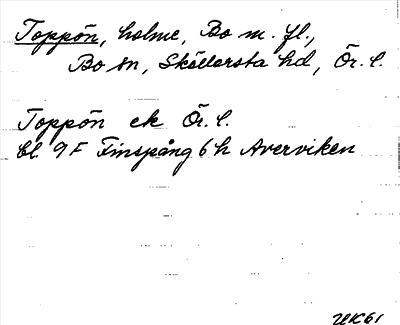 Toppön, holme, Bo m. fl.,
Bo sn, Sköllersta hd, Ör. l.
Toppön ek Ör. l.
bl. 9F Finspång 6 h Averviken
UK61